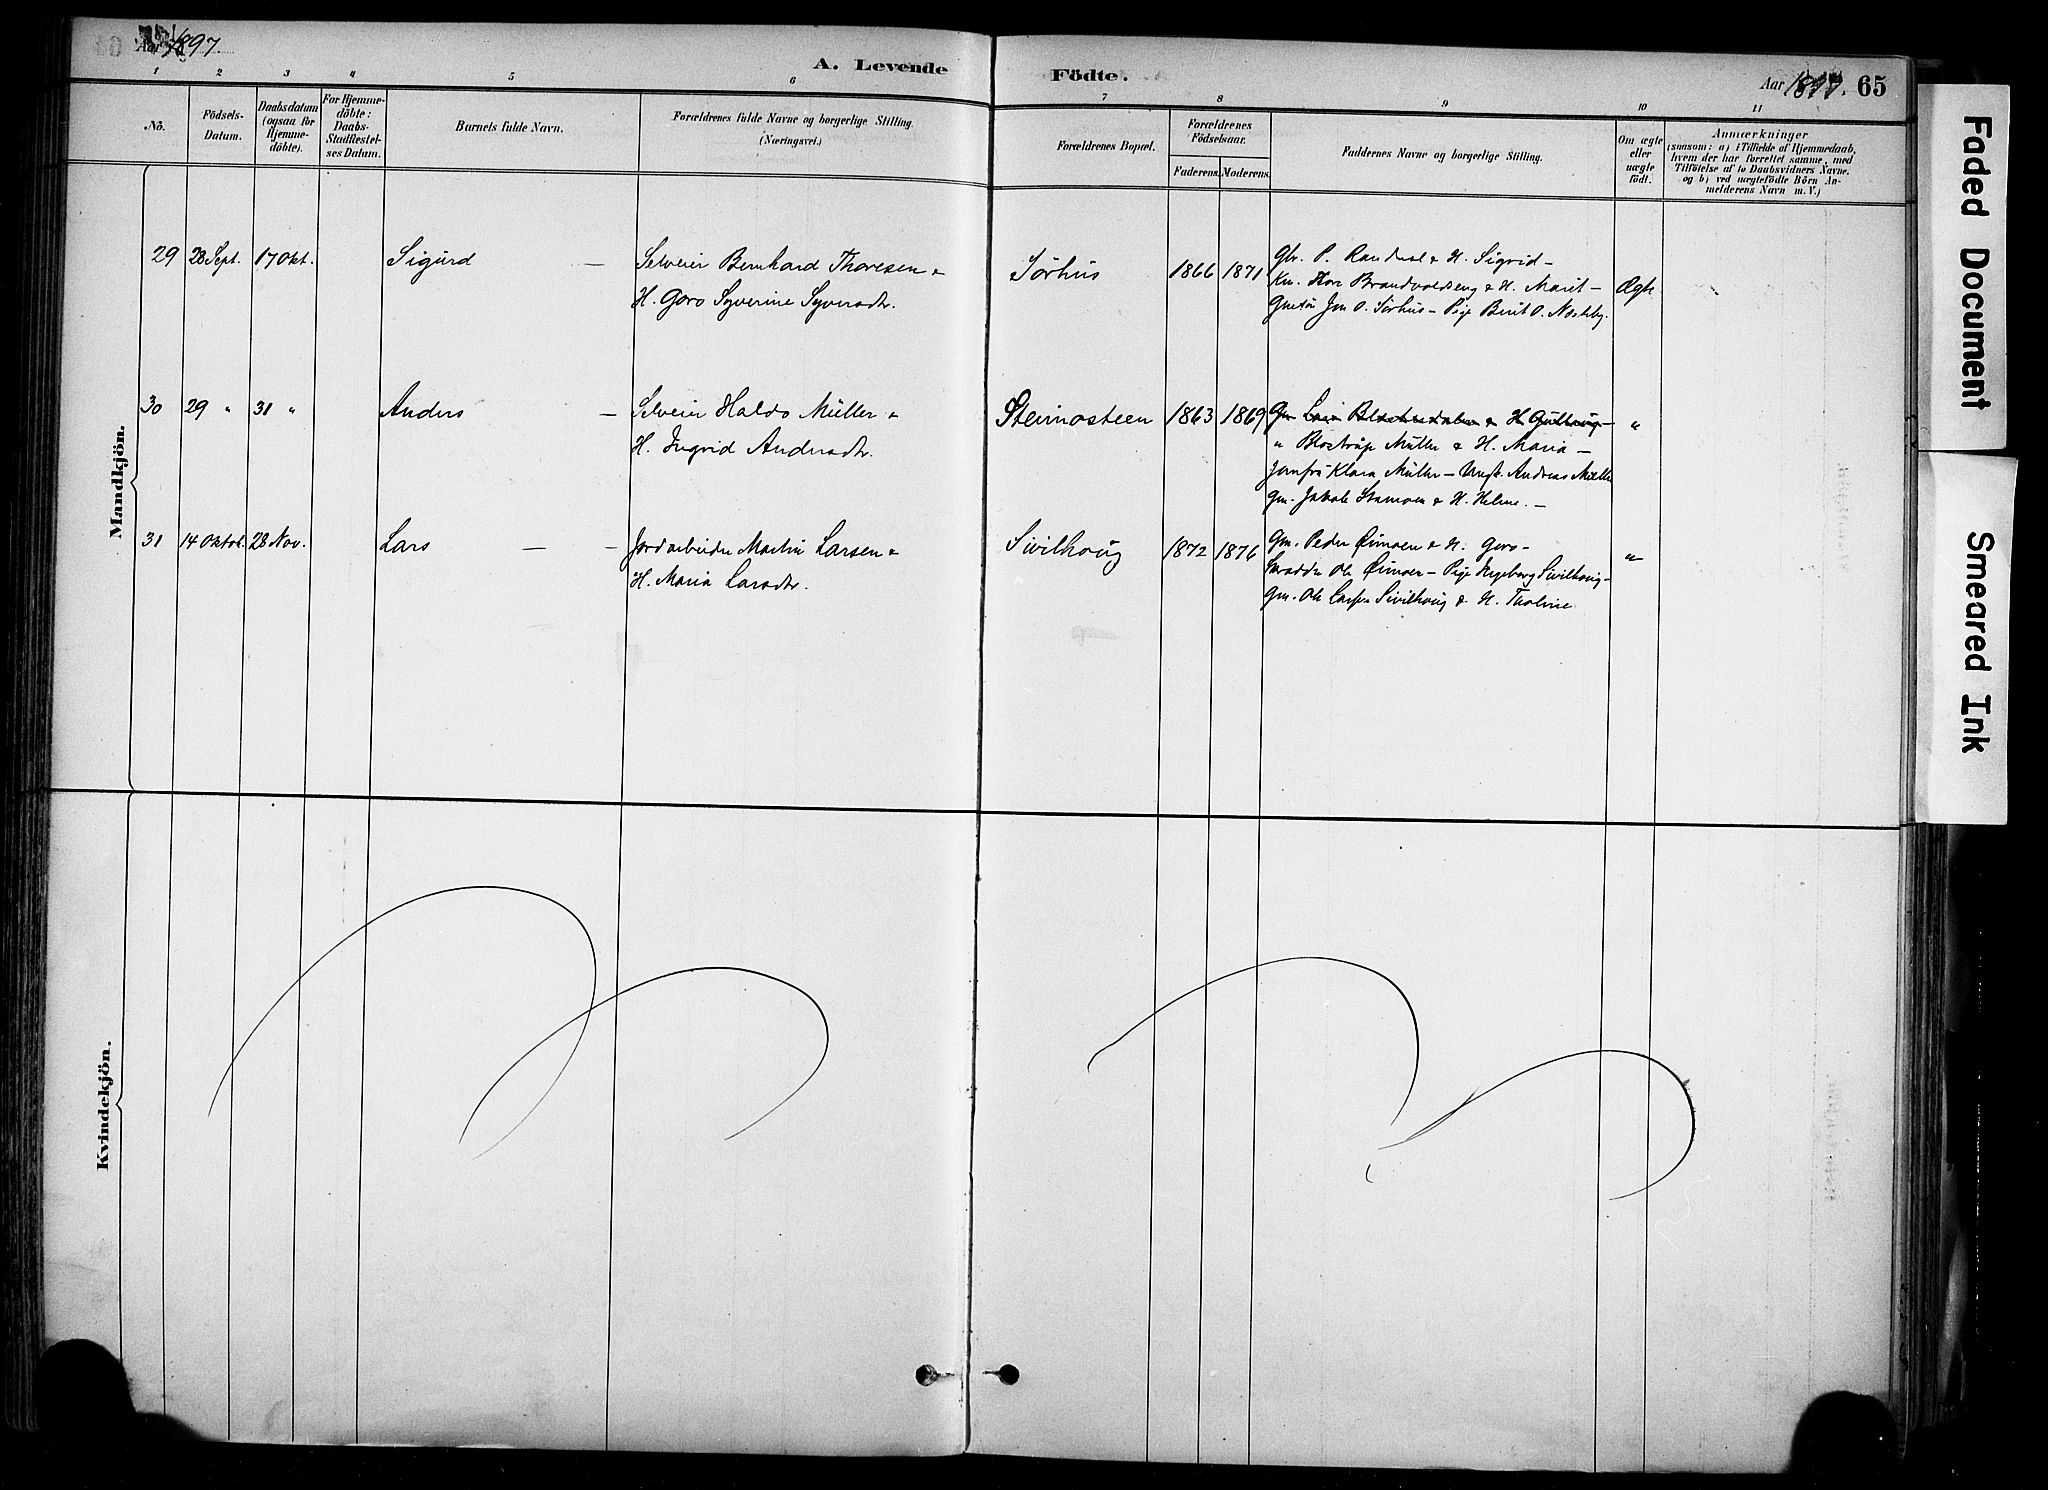 Aar 1897.
A. Levende Födte.
Aar 1897. 65
1 2 3 4 5 6 7 8 9 10 11
No.
Födsels-Datum.
Daabsdatum (ogsaa for Hjemme-döbte).
For Hjemme-döbte: Daabs-Stadfæstel-ses Datum.
Barnets fulde Navn.
Forældrenes fulde Navne og borgerlige Stilling. (Næringsvei.)
Forældrenes Bopæl.
Forældrenes Födselsaar.
Faderens. Moderens.
Faddernes Navne og borgerlige Stilling.
Om ægte eller uægte födt.
Anmærkninger
(saasom: a) i Tilfælde af Hjemmedaab,
hvem der har forrettet samme, med
Tilföielse af to Daabsvidners Navne.
og b) ved uægtefödte Börn An-
melderens Navn m. V.)
Mandkjön.
29 28 Sept. 17 Okt. Sigurd — Selveier Bernhard Thoresen &
H. Goro Syverine Syversdtr.
Sörhus 1866 1871
Gbr. P. Randval & H. Sigrid –
Kn. Thor Brandvoldseng & H. Marit –
Jon O. Sörhus – Pige Berit O. Nordsby.
Ægte
30 29 " 31 " Anders — Selveier Haldo Müller &
H. Ingrid Andersdtr.
Steinosteen 1863 1869
Gm. & H.
" Blostrup Müller & H. Maria –
Jomfru Klara Müller – Ungk. Andreas Müller
Gm. Jakob Stamoen & H. Helene. –
"
31 14 Oktob. 28 Nov. Lars — — Jordarbeider Martin Larsen &
H. Maria Larsdtr.
Sivilhoug 1872 1876
Gm. Peder Öimoen & H. Goro –
Skrædder Ole Öimoen – Pige Ingeborg Sivilhoug –
Gm. Ole Larsen Sivilhoug & H. Tholine
"
Kvindekjön.
Faded Document
Smeared Ink